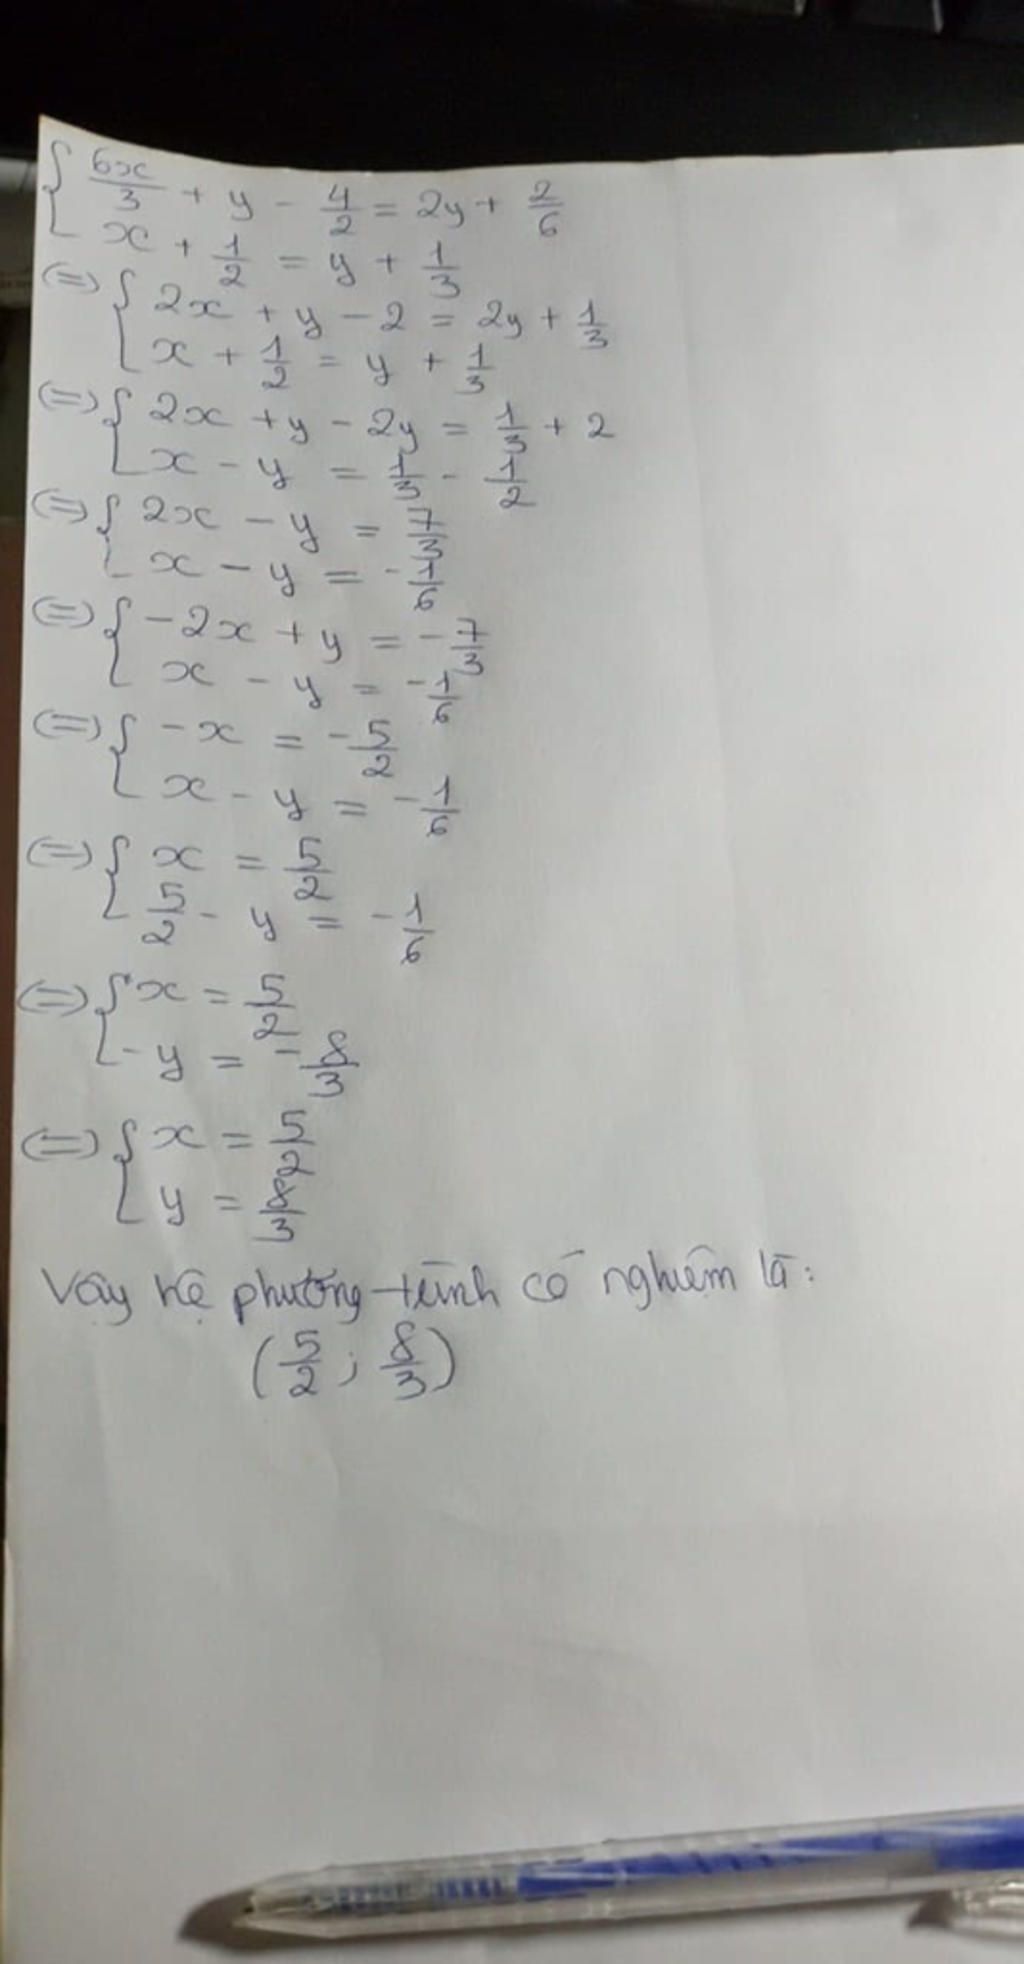 { 6x/3 + y - 4/2 = 2y + 2/6
x + 1/2 = y + 1/3
(=) { 2x + y - 2 = 2y + 1/3
x + 1/2 = y + 1/3
(=) { 2x + y - 2y = 1/3 + 2
x - y = 1/3 - 1/2
(=) { 2x - y = 7/3
x - y = -1/6
(=) { -2x + y = -7/3
x - y = -1/6
(=) { -x = -5/2
x - y = -1/6
(=) { x = 5/2
5/2 - y = -1/6
(=) { x = 5/2
-y = -8/3
(=) { x = 5/2
y = 8/3
Vậy hệ phương trình có nghiệm là:
(5/2 ; 8/3)